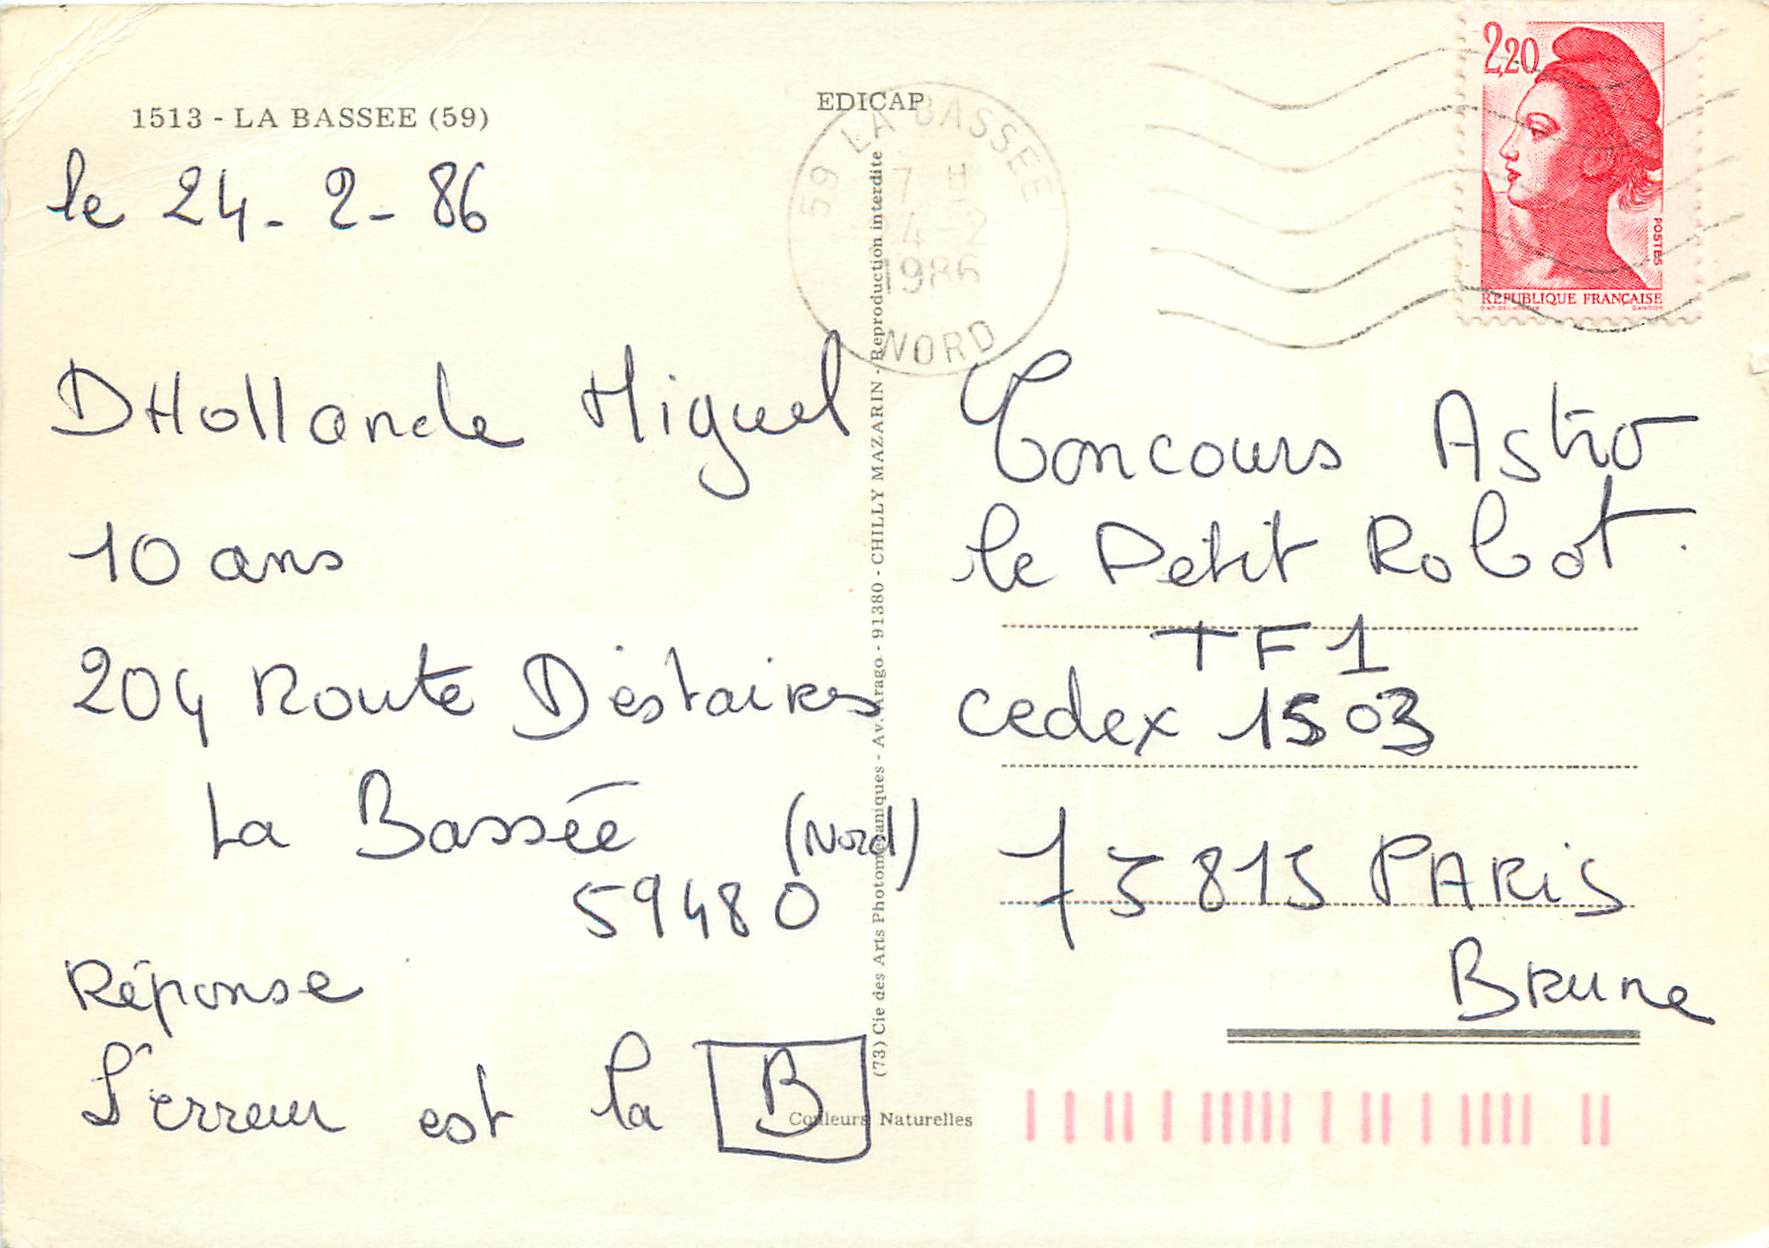 1513 - LA BASSEE (59)
le 24 - 2 - 86
DHollande Miguel
10 ans
204 Route D'estaires
La Bassée (Nord)
59480
Réponse
L'erreur est la B
EDICAP
(73) Cie des Arts Photomécaniques - Av. Arago - 91380 - CHILLY MAZARIN - Reproduction interdite
Couleurs Naturelles
59 LA BASSEE
7 H
24-2
1986
NORD
2,20
POSTES
REPUBLIQUE FRANÇAISE
Concours Astro
le Petit Robot
TF1
cedex 1503
75815 PARIS
BRUNE